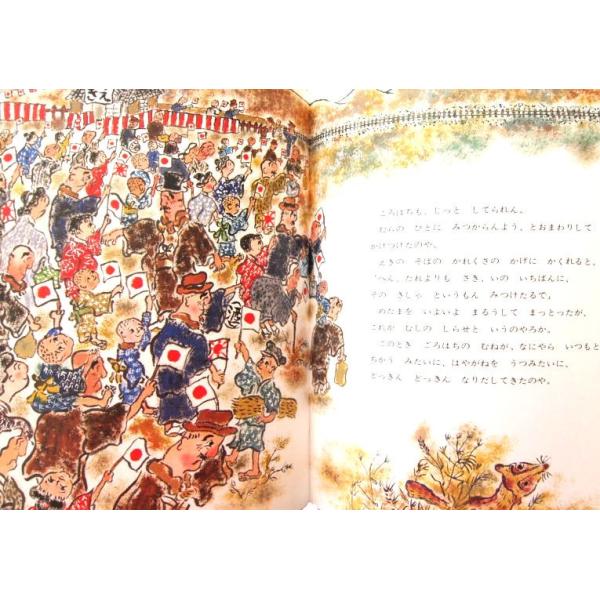 ころはちも、じっと してられん。
むらの ひとに みつからんよう、とおまわりして
かけつけたのや。
えきの そばの かれくさの かげに かくれると、
「へん、だれよりも さき、いの いちばんに、
その きしゃ というもん みつけたるで」
めだまを いよいよ まるうして まっとったが、
これが むしの しらせと いうのやろか。
このとき ごろはちの むねが、なにやら いつもと
ちがう みたいに、はやがねを うつみたいに、
どっきん どっきん なりだしてきたのや。